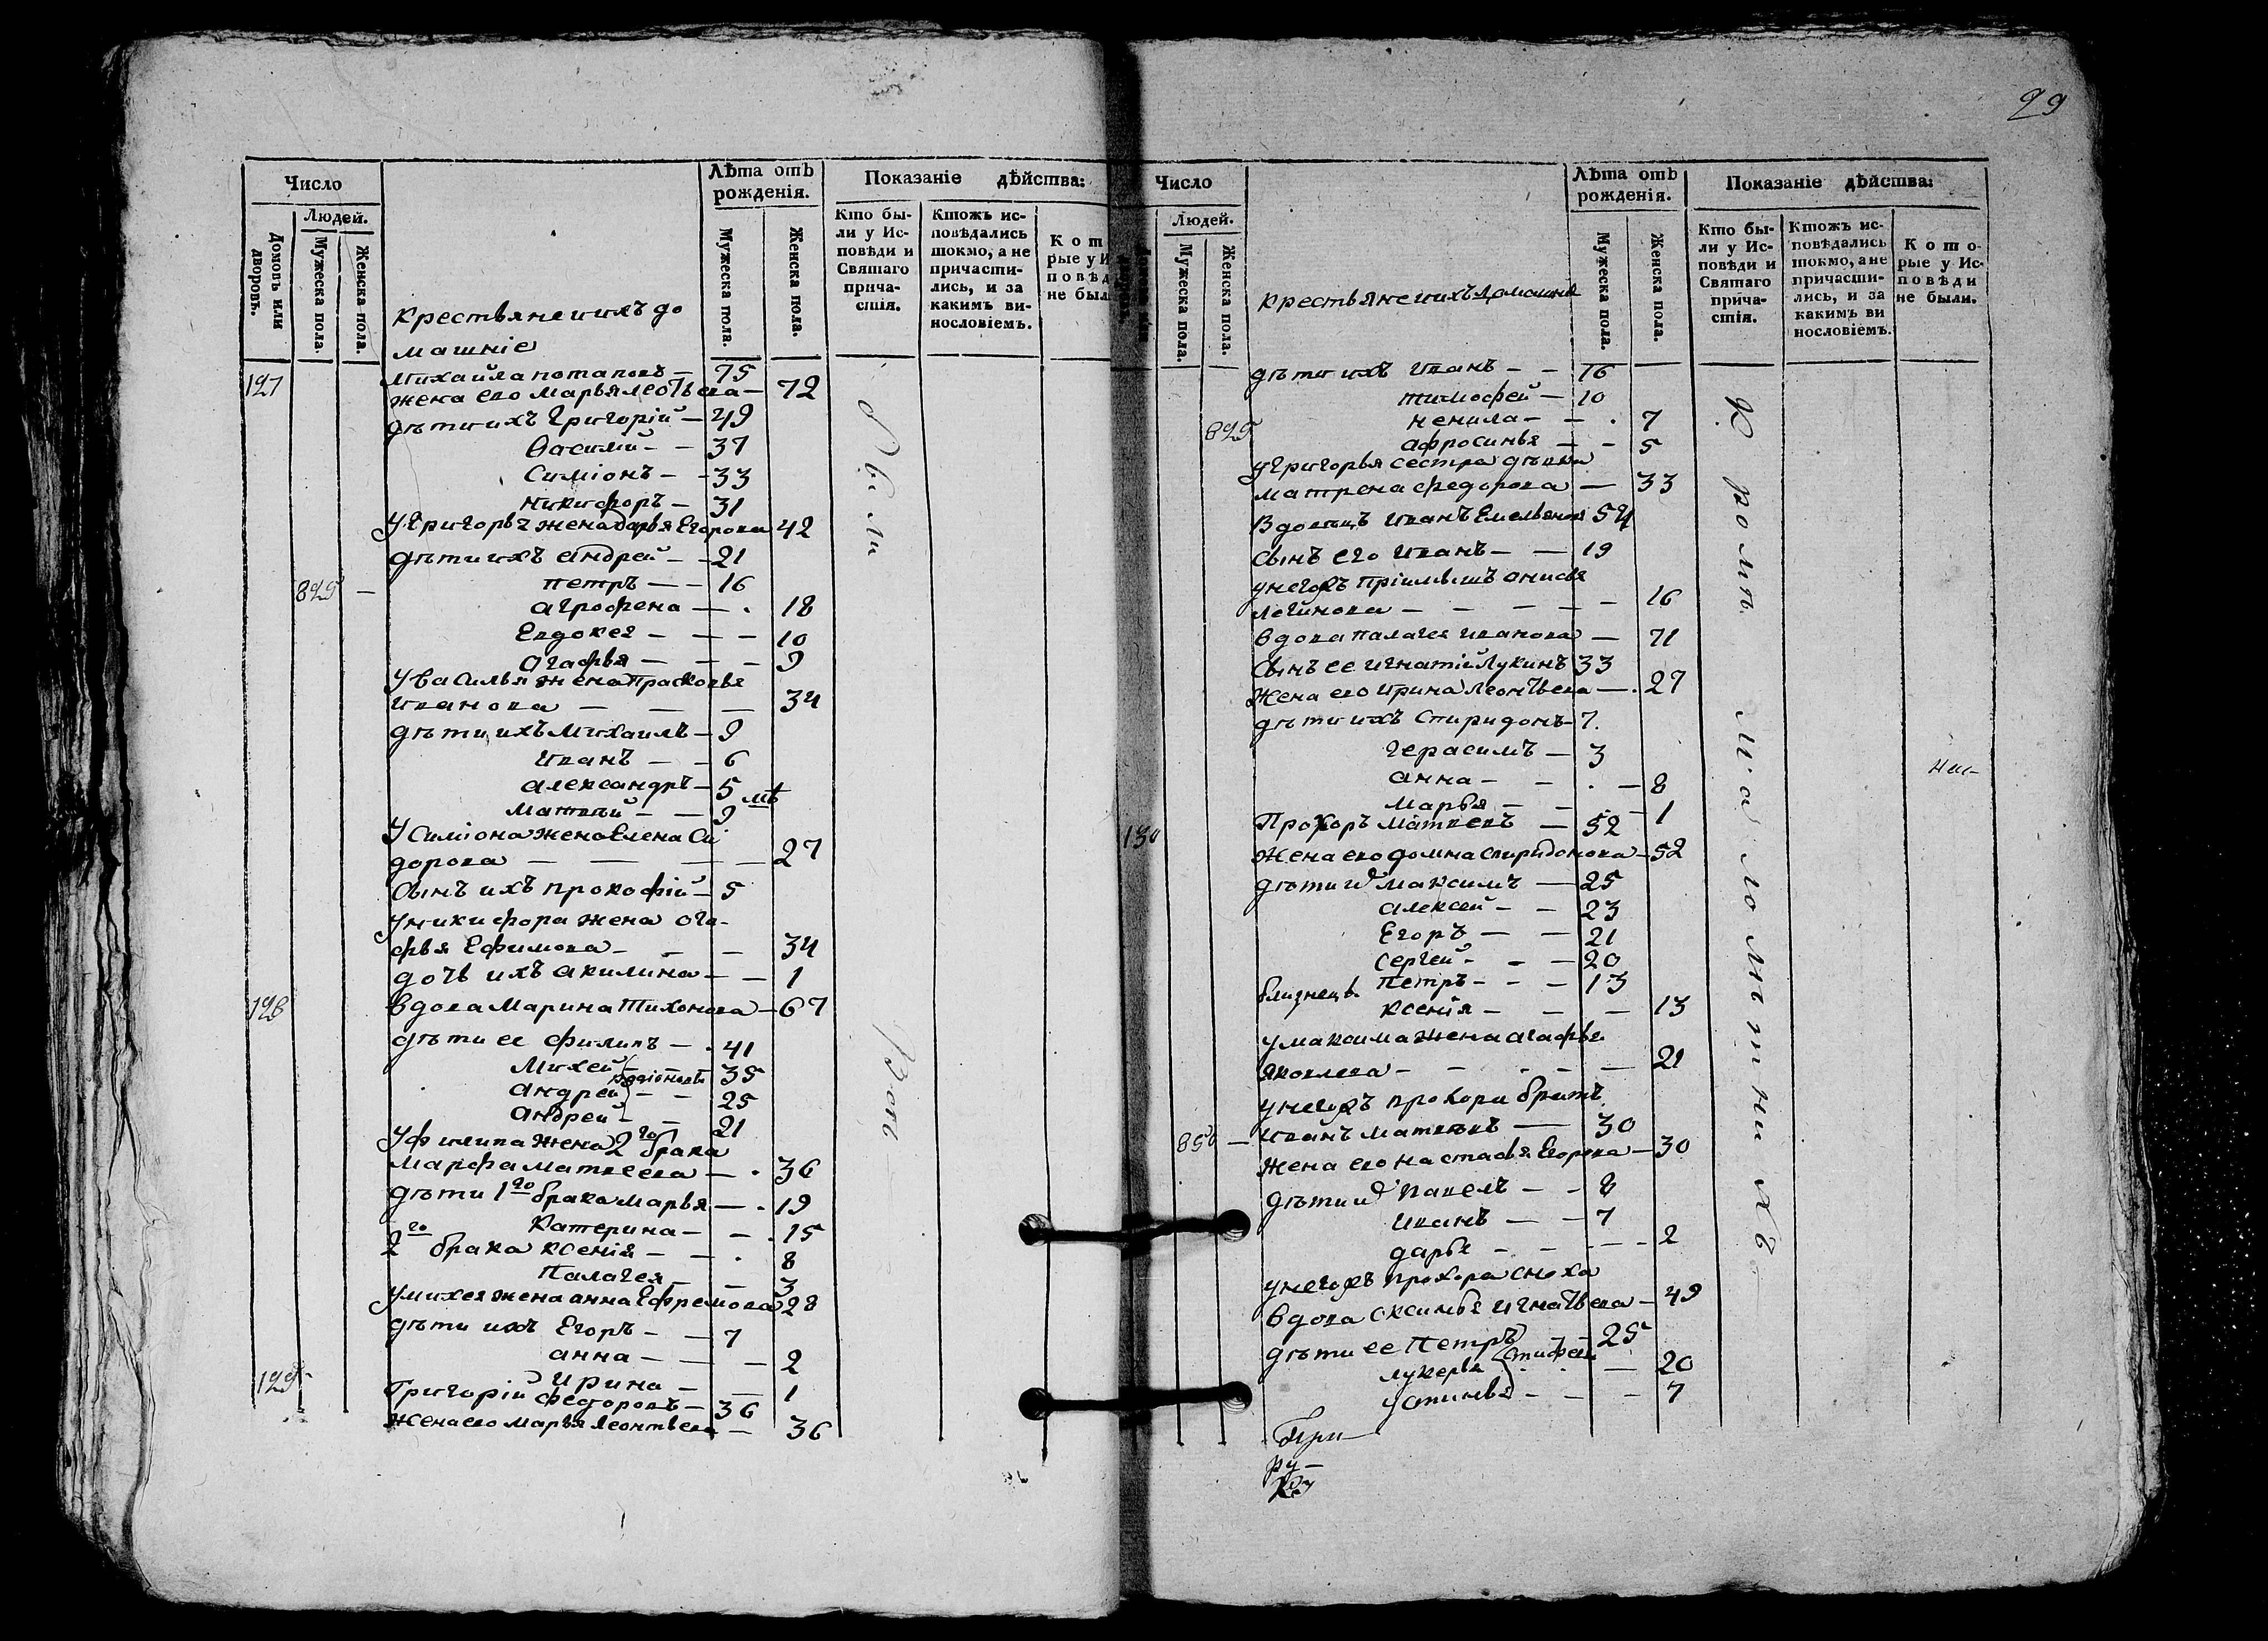 29
Число
Людей.
Домовъ или дворовъ.
Мужеска пола.
Женска пола.
крестьяне и ихъ до
машніе
Лѣта отъ
рожденія.
Мужеска пола.
Женска пола.
Показаніе дѣйства:
Кто бы-
ли у Ис-
повѣди и
Святаго
прича-
стія.
Ктожъ ис-
повѣдались
токмо, а не
причасти-
лись, и за
какимъ ви-
нословіемъ.
Кот
рые у И
повѣд
не был
127 Михайла потаповъ — 75
жена его Марья леотьева — 72
дѣти ихъ Григорій — 49
Василій — — 37
Симіонъ — — 33
Никифоръ — 31
У Григорья жена дарья Егорова 42
дѣти ихъ андрей — — 21
петръ — — 16
829 —
агрофена — . 18
Евдокея — — — 10
агафья — — — 9
У василья жена прасковья
иванова — — — 34
дѣти ихъ михаилъ — 9
иванъ — — 6
александръ — 5
матвей — — 9 мѣ
У Симіона жена Елена Си
дорова — — — — 27
Сынъ ихъ прокофій — 5
У никифора жена ога-
фья Ефимова — — — 34
дочь ихъ акилина — — 1
128 вдова Марина Тихонова — 67
дѣти ее филипъ — . 41
Михей — 35
андрей — — 25
родіоновы
андрей — — 21
У филипа жена 2го брака
марфа матвеева — . 36
дѣти 1го брака марья — . 19
катерина — — . 15
2го брака ксенія — — . 8
Палагея — — 3
У михея жена анна Ефремова 28
дѣти ихъ Егоръ — — 7
анна — — — 2
Ирина — — 1
129 Григорій федоровъ — 36
жена его марья леонтьева — 36
Были
Всѣ
Число
Людей.
Мужеска пола.
Женска пола.
крестьяне и ихъ домашніе
Лѣта отъ
рожденія.
Мужеска пола.
Женска пола.
Показаніе дѣйства:
Кто бы-
ли у Ис-
повѣди и
Святаго
прича-
стія.
Ктожъ ис-
повѣдались
токмо, а не
причасти-
лись, и за
какимъ ви
нословіемъ.
Кото-
рые у Ис-
повѣди
не были.
дѣти ихъ иванъ — — 16
тимофей — 10
829 ненила — — . 7
афросинья — — 5
у григорья сестра дѣвка
матрена федорова — 33
Вдовецъ иванъ Емельяновъ 54
Сынъ его иванъ — — 19
у негожъ пріимышъ анисья
логинова — — — — — 16
вдова палагея иванова — 71
Сынъ ее игнатій Лукинъ 33
жена его ирина леонтьева — . 27
дѣти ихъ спиридонъ — 7.
герасимъ — 3
анна — — . — 8
марья — — — 1
130 Прохоръ матвеевъ — 52
жена его домна спиридонова — 52
дѣти их максимъ — 25
алексей — — 23
Егоръ — — 21
Сергей — — — 20
близнецы петръ — — — 13
ксенія — — — 13
у максима жена агафья
яковлева — — — — — 21
у негожъ прохора братъ
858 — иванъ матвѣевъ — 30
жена его настасья Егорова — 30
дѣти их павелъ — — 8
иванъ — — 7
дарья — — — — 2
у негожъ прохора сноха
вдова оксинья игнатьева — 49
дѣти ее петръ 25
лукерья — 20
устинья — — — 7
Кромѣ малолѣтнихъ
При
ру-
ку